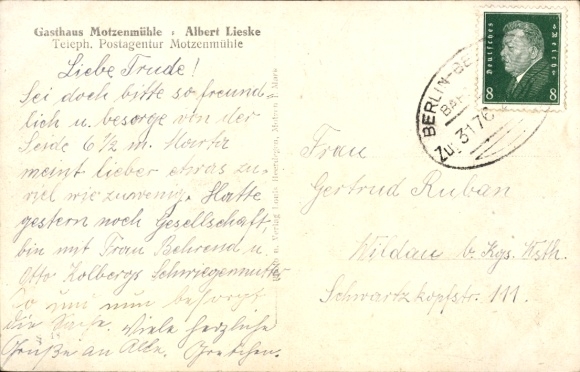 Gasthaus Motzenmühle · Albert Lieske
Teleph. Postagentur Motzenmühle
Liebe Trude!
Sei doch bitte so freund-
lich u. besorge von der
Seide 6 1/2 m. Martha
meint lieber etwas zu
viel wie zuwenig. Hatte
gestern noch Gesellschaft,
bin mit Frau Behrend u.
Otto Kolbergs Schwiegermutter
nun besorgt
die Sache. Viele herzliche
Grüße an Alle. Gretchen.
u. Verlag
Deutsches Reich
8 8
BERLIN-BE
BAH
Zug 3176
Frau
Gertrud Ruban
Wildau b. Kgs. Wsth.
Schwartzkopfstr. 111.